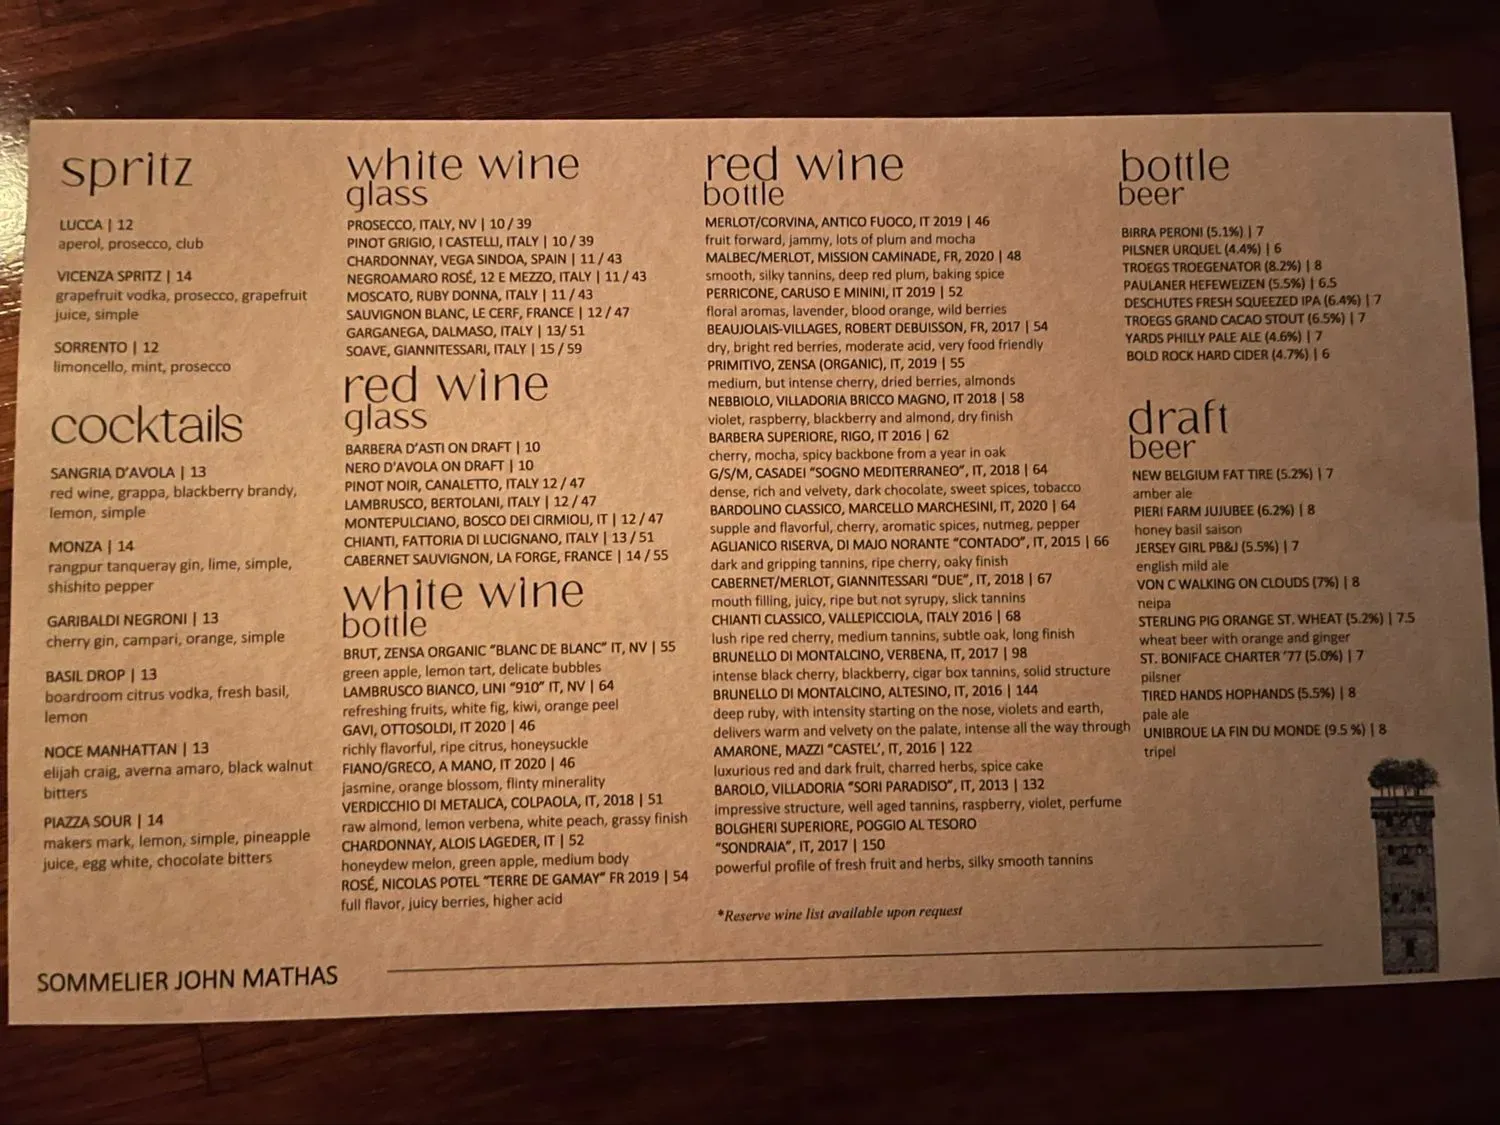 spritz
LUCCA | 12
aperol, prosecco, club
VICENZA SPRITZ | 14
grapefruit vodka, prosecco, grapefruit
juice, simple
SORRENTO | 12
limoncello, mint, prosecco
cocktails
SANGRIA D'AVOLA | 13
red wine, grappa, blackberry brandy,
lemon, simple
MONZA | 14
rangpur tanqueray gin, lime, simple,
shishito pepper
GARIBALDI NEGRONI | 13
cherry gin, campari, orange, simple
BASIL DROP | 13
boardroom citrus vodka, fresh basil,
lemon
NOCE MANHATTAN | 13
elijah craig, averna amaro, black walnut
bitters
PIAZZA SOUR | 14
makers mark, lemon, simple, pineapple
juice, egg white, chocolate bitters
white wine
glass
PROSECCO, ITALY, NV | 10 / 39
PINOT GRIGIO, I CASTELLI, ITALY | 10 / 39
CHARDONNAY, VEGA SINDOA, SPAIN | 11 / 43
NEGROAMARO ROSÉ, 12 E MEZZO, ITALY | 11 / 43
MOSCATO, RUBY DONNA, ITALY | 11 / 43
SAUVIGNON BLANC, LE CERF, FRANCE | 12 / 47
GARGANEGA, DALMASO, ITALY | 13/ 51
SOAVE, GIANNITESSARI, ITALY | 15 / 59
red wine
glass
BARBERA D'ASTI ON DRAFT | 10
NERO D'AVOLA ON DRAFT | 10
PINOT NOIR, CANALETTO, ITALY 12 / 47
LAMBRUSCO, BERTOLANI, ITALY | 12 / 47
MONTEPULCIANO, BOSCO DEI CIRMIOLI, IT | 12 / 47
CHIANTI, FATTORIA DI LUCIGNANO, ITALY | 13 / 51
CABERNET SAUVIGNON, LA FORGE, FRANCE | 14 / 55
white wine
bottle
BRUT, ZENSA ORGANIC "BLANC DE BLANC" IT, NV | 55
green apple, lemon tart, delicate bubbles
LAMBRUSCO BIANCO, LINI "910" IT, NV | 64
refreshing fruits, white fig, kiwi, orange peel
GAVI, OTTOSOLDI, IT 2020 | 46
richly flavorful, ripe citrus, honeysuckle
FIANO/GRECO, A MANO, IT 2020 | 46
jasmine, orange blossom, flinty minerality
VERDICCHIO DI METALICA, COLPAOLA, IT, 2018 | 51
raw almond, lemon verbena, white peach, grassy finish
CHARDONNAY, ALOIS LAGEDER, IT | 52
honeydew melon, green apple, medium body
ROSÉ, NICOLAS POTEL "TERRE DE GAMAY" FR 2019 | 54
full flavor, juicy berries, higher acid
red wine
bottle
MERLOT/CORVINA, ANTICO FUOCO, IT 2019 | 46
fruit forward, jammy, lots of plum and mocha
MALBEC/MERLOT, MISSION CAMINADE, FR, 2020 | 48
smooth, silky tannins, deep red plum, baking spice
PERRICONE, CARUSO E MININI, IT 2019 | 52
floral aromas, lavender, blood orange, wild berries
BEAUJOLAIS-VILLAGES, ROBERT DEBUISSON, FR, 2017 | 54
dry, bright red berries, moderate acid, very food friendly
PRIMITIVO, ZENSA (ORGANIC), IT, 2019 | 55
medium, but intense cherry, dried berries, almonds
NEBBIOLO, VILLADORIA BRICCO MAGNO, IT 2018 | 58
violet, raspberry, blackberry and almond, dry finish
BARBERA SUPERIORE, RIGO, IT 2016 | 62
cherry, mocha, spicy backbone from a year in oak
G/S/M, CASADEI "SOGNO MEDITERRANEO", IT, 2018 | 64
dense, rich and velvety, dark chocolate, sweet spices, tobacco
BARDOLINO CLASSICO, MARCELLO MARCHESINI, IT, 2020 | 64
supple and flavorful, cherry, aromatic spices, nutmeg, pepper
AGLIANICO RISERVA, DI MAJO NORANTE "CONTADO", IT, 2015 | 66
dark and gripping tannins, ripe cherry, oaky finish
CABERNET/MERLOT, GIANNITESSARI "DUE", IT, 2018 | 67
mouth filling, juicy, ripe but not syrupy, slick tannins
CHIANTI CLASSICO, VALLEPICCIOLA, ITALY 2016 | 68
lush ripe red cherry, medium tannins, subtle oak, long finish
BRUNELLO DI MONTALCINO, VERBENA, IT, 2017 | 98
intense black cherry, blackberry, cigar box tannins, solid structure
BRUNELLO DI MONTALCINO, ALTESINO, IT, 2016 | 144
deep ruby, with intensity starting on the nose, violets and earth,
delivers warm and velvety on the palate, intense all the way through
AMARONE, MAZZI "CASTEL', IT, 2016 | 122
luxurious red and dark fruit, charred herbs, spice cake
BAROLO, VILLADORIA "SORI PARADISO", IT, 2013 | 132
impressive structure, well aged tannins, raspberry, violet, perfume
BOLGHERI SUPERIORE, POGGIO AL TESORO
"SONDRAIA", IT, 2017 | 150
powerful profile of fresh fruit and herbs, silky smooth tannins
*Reserve wine list available upon request
bottle
beer
BIRRA PERONI (5.1%) | 7
PILSNER URQUEL (4.4%) | 6
TROEGS TROEGENATOR (8.2%) | 8
PAULANER HEFEWEIZEN (5.5%) | 6.5
DESCHUTES FRESH SQUEEZED IPA (6.4%) | 7
TROEGS GRAND CACAO STOUT (6.5%) | 7
YARDS PHILLY PALE ALE (4.6%) | 7
BOLD ROCK HARD CIDER (4.7%) | 6
draft
beer
NEW BELGIUM FAT TIRE (5.2%) | 7
amber ale
PIERI FARM JUJUBEE (6.2%) | 8
honey basil saison
JERSEY GIRL PB&J (5.5%) | 7
english mild ale
VON C WALKING ON CLOUDS (7%) | 8
neipa
STERLING PIG ORANGE ST. WHEAT (5.2%) | 7.5
wheat beer with orange and ginger
ST. BONIFACE CHARTER '77 (5.0%) | 7
pilsner
TIRED HANDS HOPHANDS (5.5%) | 8
pale ale
UNIBROUE LA FIN DU MONDE (9.5 %) | 8
tripel
SOMMELIER JOHN MATHAS